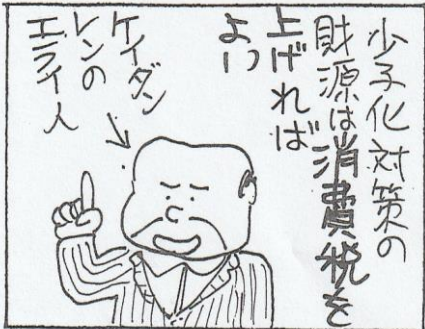 少子化対策の
財源は消費税を
上げれば
よい
ケイダン
レンの
エライ人